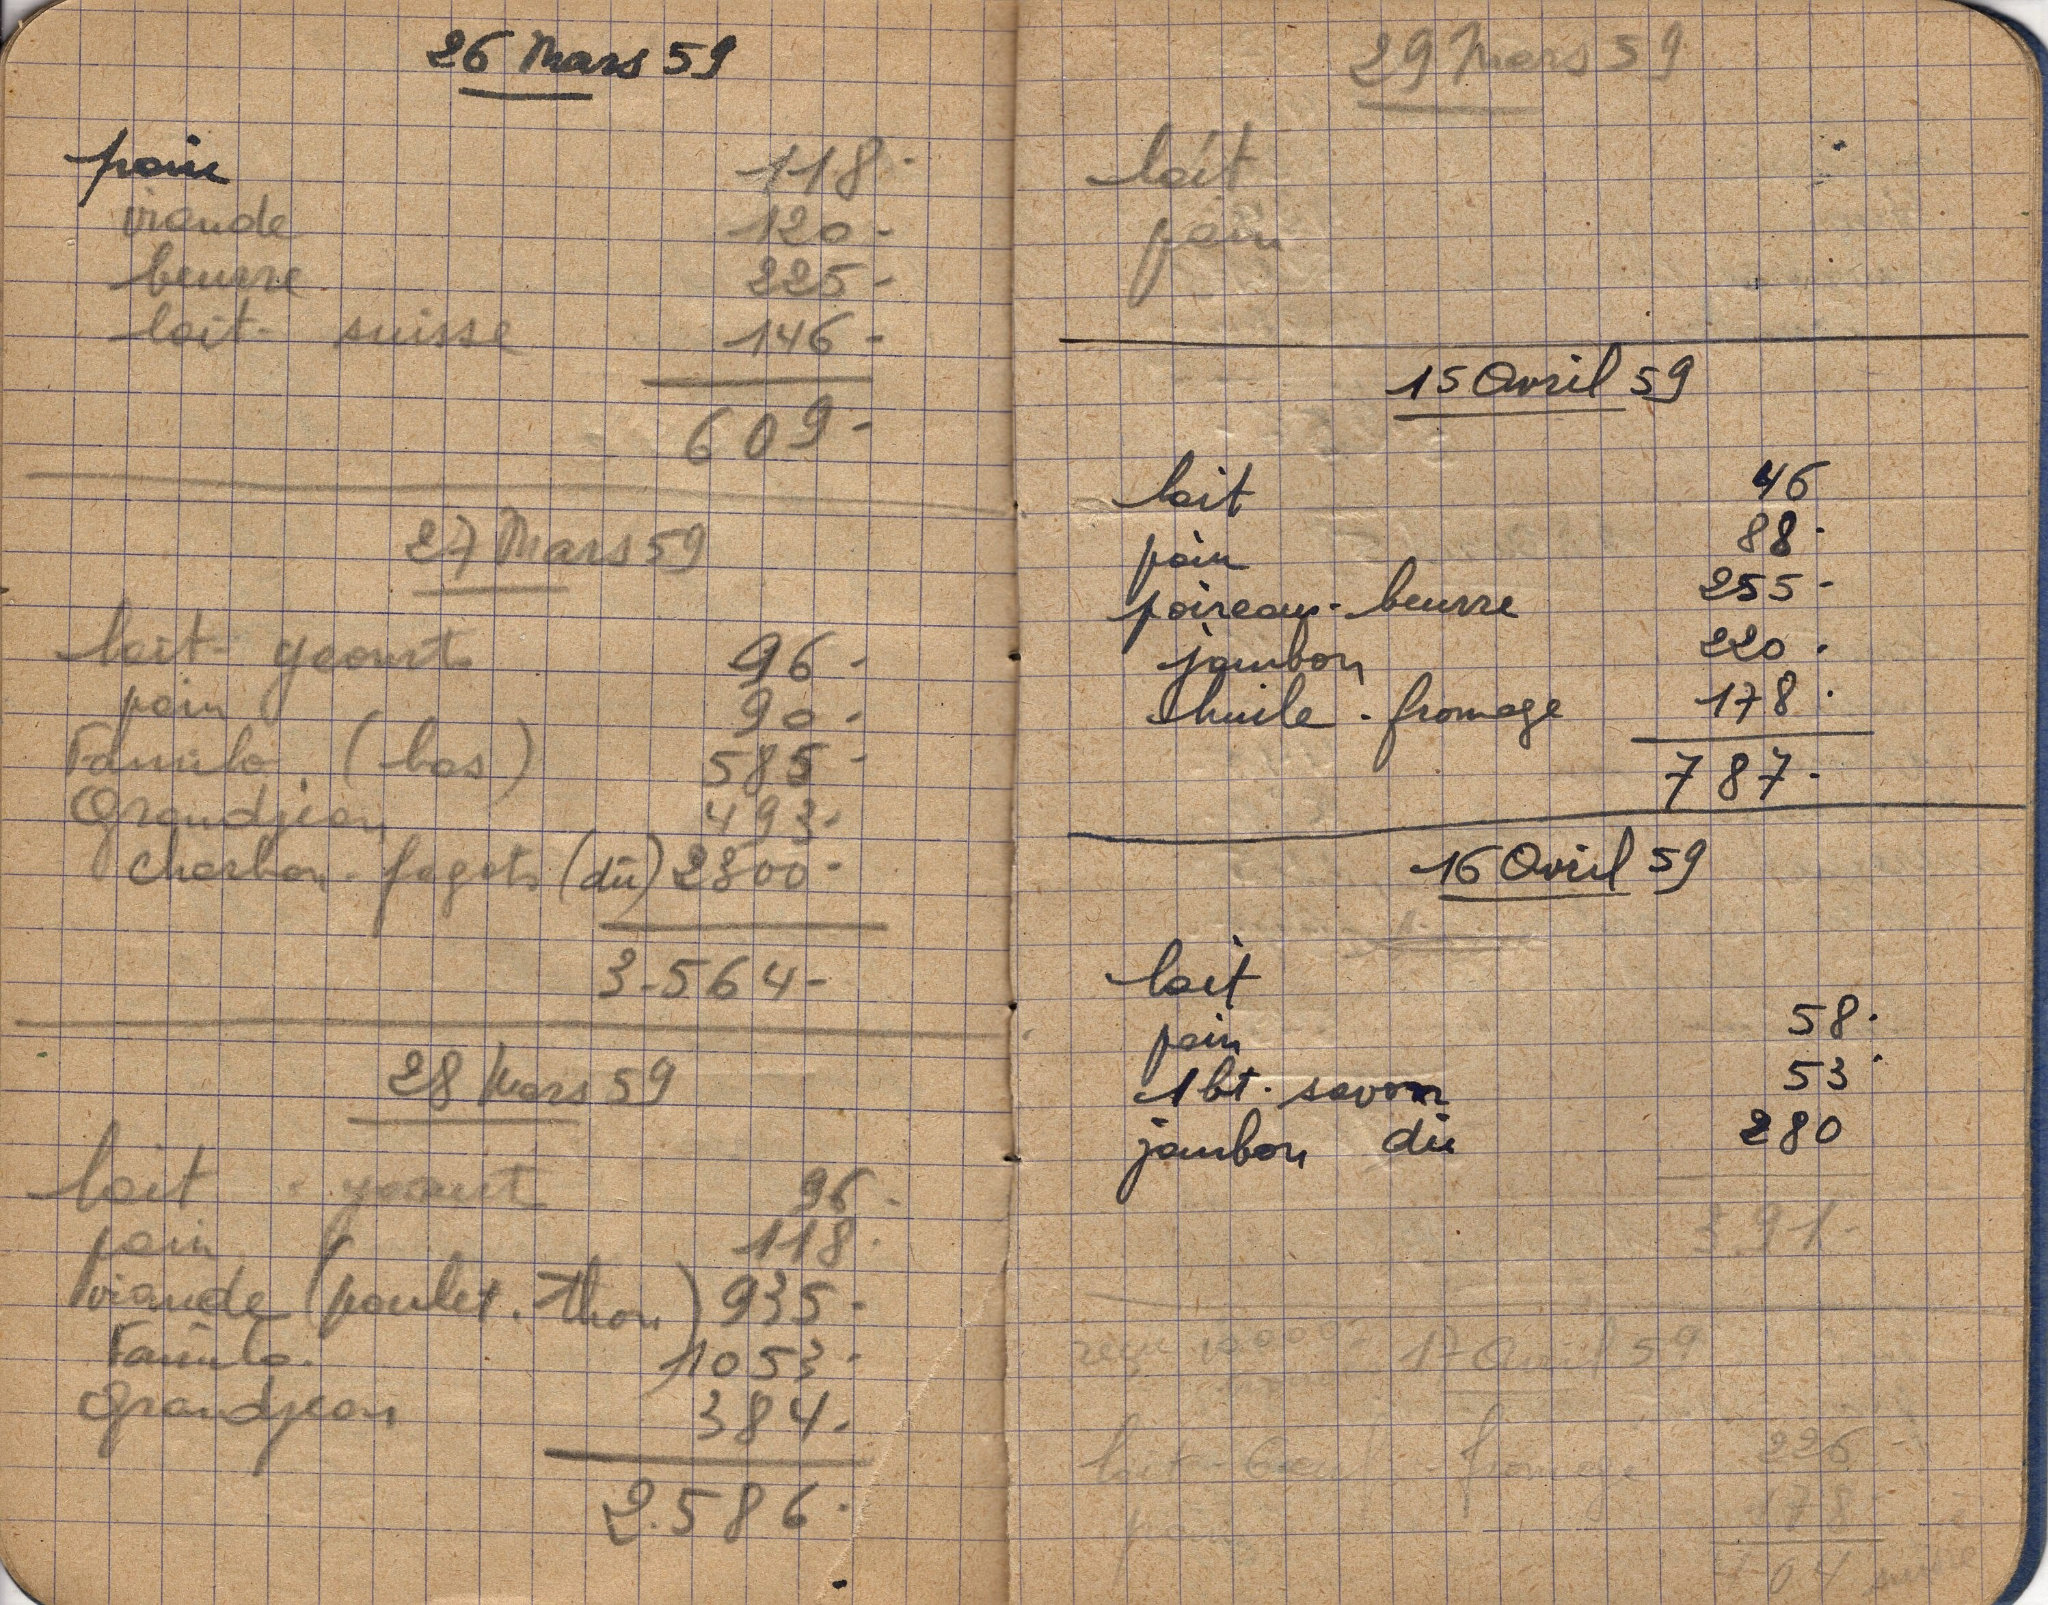 26 Mars 59
pain 118-
viande 120-
beurre 225-
lait- suisse 146-
609-
27 Mars 59
lait- yaourts 96-
pain 90-
Familo. (bas) 585-
Grandjean 493-
Charbon- fagots (dû) 2300-
3.564-
28 Mars 59
lait - yaourt 96-
pain 118-
viande (poulet. Thon) 935-
Familo. 1053-
Grandjean 384-
2.586-
29 Mars 59
lait
pain
15 Avril 59
lait 46
pain 88-
poireaux- beurre 255-
jambon 220-
huile - fromage 178-
787-
16 Avril 59
lait
pain 58-
1 bt. savon 53-
jambon dû 280
391-
reçu 10000- 17 Avril 59
lait - fromage 226-
pain 178-
404 suite